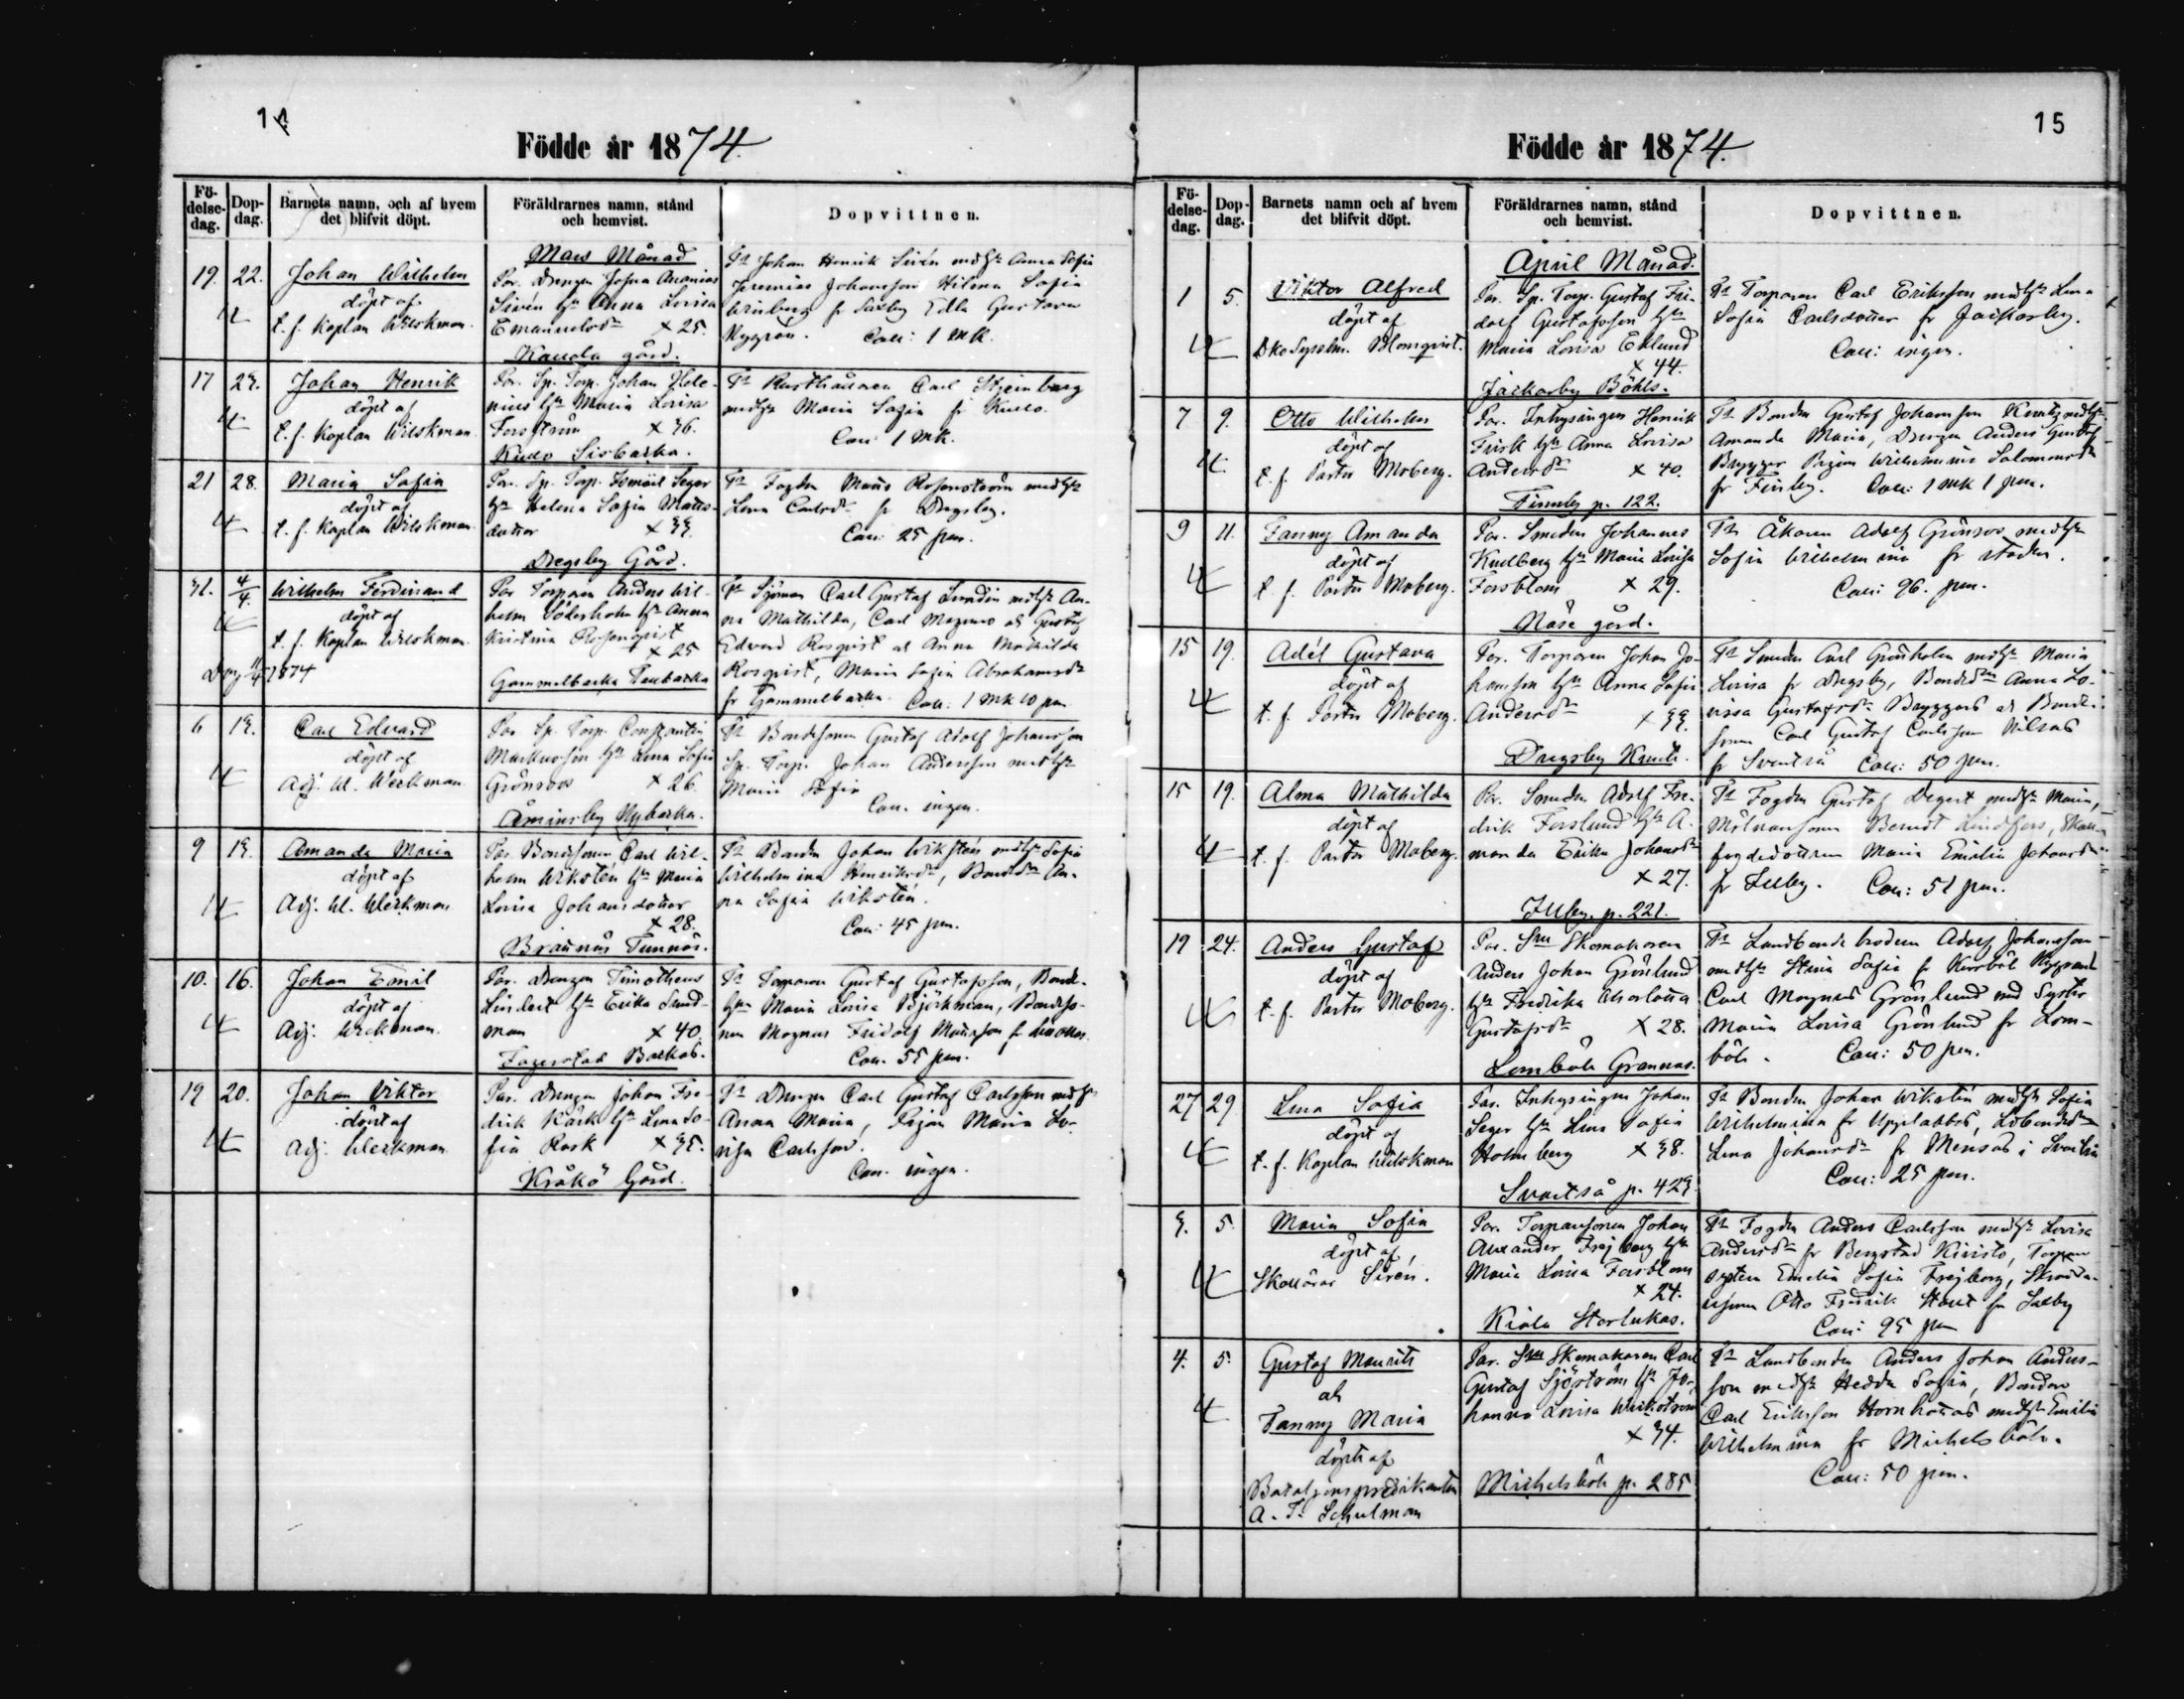 14
Födde år 1874.
Fö-
delse-
dag.
Dop-
dag.
Barnets namn, och af hvem
det blifvit döpt.
Föräldrarnes namn, stånd
och hemvist.
Dopvittnen.
Mars Månad
19. 22. Johan Wilhelm
döpt af
t. f. Kaplan Wilskman.
Par. Drengen Josua Ananias
Sirén hst Anna Lovisa
Emanuelsdr × 25.
Kaucla gård.
Fr Johan Henrik Sirén med hst Anna Sofia
Jeremias Johansson Hilena Sofia
fr Saxby Edla Gustava
Nygrén. Coll: 1 mk.
17 23. Johan Henrik
döpt af
t. f. Kaplan Wilskman.
Par. Sp. Torp. Johan Hele-
nius hst Maria Lovisa
Forsström × 36.
Kullo Sisbacka.
Fr Rusthållaren Carl Stjernberg
med hst Maria Sofia fr Kullo.
Coll: 1 mk.
21 28. Maria Sofia
döpt af
t. f. Kaplan Wilskman
Par. Sp. Torp. Ismael Seger
hst Helena Sofia Matts-
dotter × 33.
Drägsby Gård.
Fr Fogden Måns Rosenström med hst
Lena Carlsdr fr Drägsby.
Coll: 25 pen.
31. 4/4. Wilhelm Ferdinand
döpt af
t. f. Kaplan Wilskman.
Död 11/4 1874
Par Torparen Anders Wil-
helm Söderholm hst Anna
Kristina Rosenqvist
× 25
Gammelbacka Tallbacka
Fr Sjöman Carl Gustaf Lundin med hst An-
na Mathilda, Carl Magnus och Gustaf
Edvard Rosqvist och Anna Mathilda
Rosqvist, Maria Sofia Abrahamsdr
fr Gammelbacka. Coll: 1 mk 10 pen
6 13. Carl Edvard
döpt af
Adj. W. Weckman.
Par Sp. Torp. Constantin
Markusson hst Lena Sofia
Grönroos × 26.
Åminsby Nybacka.
Fr Bondesonen Gustaf Adolf Johansson
Sp. Torp. Johan Andersson med hst
Maria Sofia
Coll. ingen.
9 13. Amanda Maria
döpt af
Adj. W. Weckman
Par. Bondesonen Carl Wil-
helm Wikstén hst Maria
Lovisa Johansdotter
× 28.
Braunäs Tunnäs.
Fr Bonden Johan Wikstén med hst Sofia
Wilhelmina Henriksdr, Bondedr An-
na Sofia Wikstén.
Coll: 45 pen.
10. 16. Johan Emil
döpt af
Adj. Weckman.
Par. Drengen Timotheus
Lindert hst Erika Sund-
man × 40.
Fagerstad Backas.
Fr Torparen Gustaf Gustafsson, Bond-
hst Maria Lovisa Björkman, Bondeso-
nen Magnus Fridolf Mattsson
Coll. 55 pen.
19 20. Johan Viktor
döpt af
Adj. Weckman
Par. Drengen Johan Fre-
drik Rask hst Lena So-
fia Rask × 35.
Kråkö Gård.
Fr Drengen Carl Gustaf Carlsson med hst
Anna Maria, Pigan Maria Lo-
visa Carlsson.
Coll. ingen.
15
Födde år 1874.
Fö-
delse-
dag.
Dop-
dag.
Barnets namn och af hvem
det blifvit döpt.
Föräldrarnes namn, stånd
och hemvist.
Dopvittnen.
April Månad.
1 5. Viktor Alfred
döpt af
Blomqvist.
Par. Sp. Torp. Gustaf Fri-
dolf Gustafsson hst
Maria Lovisa Eklund
× 44.
Jackarby Böhls.
Fr Torparen Carl Eriksson med hst Lena
Sofia Carlsdotter fr Jackarby.
Coll: ingen.
7 9. Otto Wilhelm
döpt af
t. f. Pastor Moberg.
Par. Inhysingen Henrik
Fisk hst Anna Lovisa
Andersdr × 40.
Finnby p. 122.
Fr Bonden Gustaf Johansson med hst
Amanda Maria, Drengen Anders Gustaf
Brygger Pigan Wilhelmina Salomonsdr
fr Finby. Coll: 1 mk 1 pen.
9 11. Fanny Amanda
döpt af
t. f. Pastor Moberg.
Par. Smeden Johannes
Kullberg hst Maria Lovisa
Forsblom × 29.
Näse gård.
Fr Åkaren Adolf Grönroos med hst
Sofia Wilhelmina fr staden.
Coll: 96. pen.
15 19. Adél Gustava
döpt af
t. f. Pastor Moberg.
Par. Torparen Johan Jo-
hansson hst Anna Sofia
Andersdr × 33.
Drägsby
Fr Smeden Carl Grönholm med hst Maria
Lovisa fr Drägsby, Bondedr Anna Lo-
vissa Gustafsdr Bryggars och Bonde-
sonen Carl Gustaf Carlsson Nilsas
fr Svartså Coll: 50 pen.
15 19. Alma Mathilda
döpt af
t. f. Pastor Moberg.
Par. Smeden Adolf Fre-
drik Forslund hst A-
manda Erika Johansdr
× 27.
Illby p. 221.
Fr Fogden Gustaf Degert med hst Maria,
Mölnarsonen Berndt Lindfors, Skall-
fogdedottren Maria Emilia Johansdr
fr Illby. Coll: 51 pen.
19 24. Anders Gustaf
döpt af
t. f. Pastor Moberg.
Par. Skomakaren
Anders Johan Grönlund
hst Fredrika Charlotta
Gustafsdr × 28.
Lomböle Grannas.
Fr Landbonde brodren Adolf Johansson
med hst Stina Sofia fr Kerrböle
Carl Magnus Grönlund med Syster
Maria Lovisa Grönlund fr Lom-
böle. Coll: 50 pen.
27 29 Lena Sofia
döpt af
t. f. Kaplan Wilskman
Par. Inhysingen Johan
Seger hst Lena Sofia
Holmberg × 38.
Svartså p. 423
Fr Bonden Johan Wikstén med hst Sofia
Wilhelmina fr Upplabbas,
Lena Johansdr fr Mensas i Svartså
Coll: 25 pen.
3. 5. Maria Sofia
döpt af,
Sirén.
Par. Torparsonen Johan
Alexander Frejborg hst
Maria Lovisa Forsblom
× 24.
Kiala Storlukas.
Fr Fogden Anders Carlsson med hst Lovisa
Andersdr fr Bergstad Kiiristo, Torpare
systern Emelia Sofia Frejborg, Skrädda-
resonen Otto Fredrik fr Saxby
Coll: 95 pen
4. 5. Gustaf Maurits
och
Fanny Maria
döpta af
Bataljonspredikanten
A. F. Schulman
Par. Skomakaren Carl
Gustaf Sjöström hst Jo-
hanna Lovisa Weckström
× 34.
Michelsböle p. 285
Fr Landbonden Anders Johan Anders-
son med hst Hedda Sofia, Bonden
Carl Eriksson Hornhattas med hst Emilia
Wilhelmina fr Michelsböle.
Coll: 50 pen.